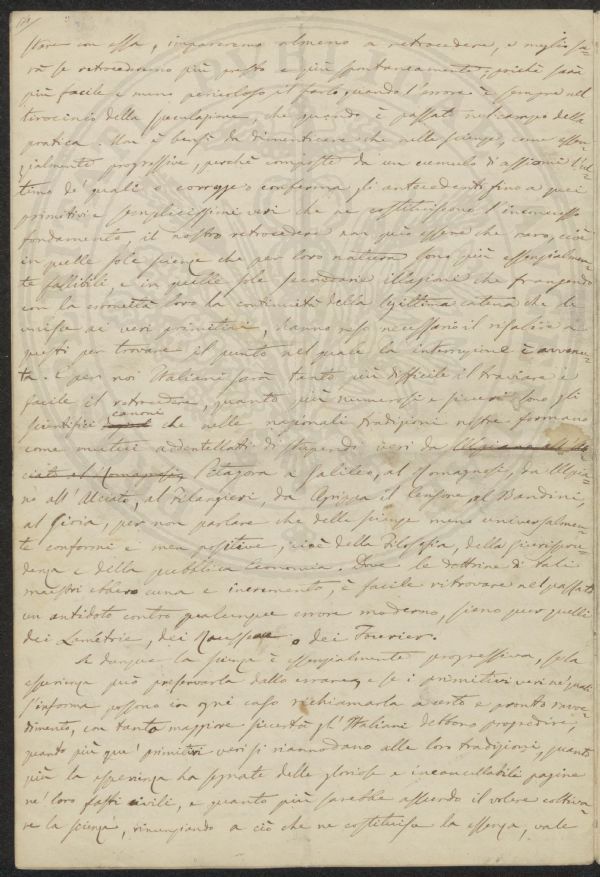 stere con essa, impareremo almeno a retrocedere, e meglio sa-
rà se retrocederemo più presto e più spontaneamente, poichè sarà
più facile e meno pericoloso il farlo quando l'errore è sempre nel
tirocinio della speculazione, che quando è passato nel campo della
pratica. Non è bensì da dimenticare che nelle scienze, come essen-
zialmente progressive, perchè composte da un cumulo d'assiomi l'ul-
timo de' quali o corregge o conferma gli antecedenti fino a quei
primitivi e semplicissimi veri che ne costituiscono l'inconcusso
fondamento, il nostro retrocedere non può essere che raro, cioè
in quelle sole scienze che per loro natura sono più essenzialmen-
te fallibili, e in quelle sole secondarie illazioni che frangendo
con la erroneità loro la continuità della legittima catena che le
unisce ai veri primitivi, hanno reso necessario il risalire a
questi per trovare il punto nel quale la interruzione è avvenu-
ta. E per noi Italiani sarà tanto più difficile il traviare e
facile il retrocedere, quanto più numerosi e sicuri sono gli
scientifici canoni che nelle nazionali tradizioni nostre formano
come addentellati di stupendi veri da
Pitagora a Galileo, al Romagnosi, da Ulpia-
no all'Alciato, al Filangieri, da Agrippa il Censore al Bandini,
al Gioia, per non parlare che delle scienze meno universalmen-
te conformi e men positive, cioè della Filosofia, della Giurispru-
denza e della pubblica Economia. Dove le dottrine di tali
maestri ebbero cuna e incremento, è facile ritrovare nel passato
un antidoto contro qualunque errore moderno, sieno pur quelli
dei Lamétrie, dei Rousseau, o dei Fourier.
Se dunque la scienza è essenzialmente progressiva, se la
esperienza può preservarla dallo errare, e se i primitivi veri ne' quali
s'informa possono in ogni caso richiamarla a certo e pronto ravve-
dimento, con tanto maggiore sicurtà gl'Italiani debbono progredire,
quanto più que' primitivi veri si riannodano alle loro tradizioni, quanto
più la esperienza ha segnate delle gloriose e incancellabili pagine
ne' loro fasti civili, e quanto più sarebbe assurdo il volere coltiva-
re la scienza, rinunziando a ciò che ne costituisce la essenza, vale